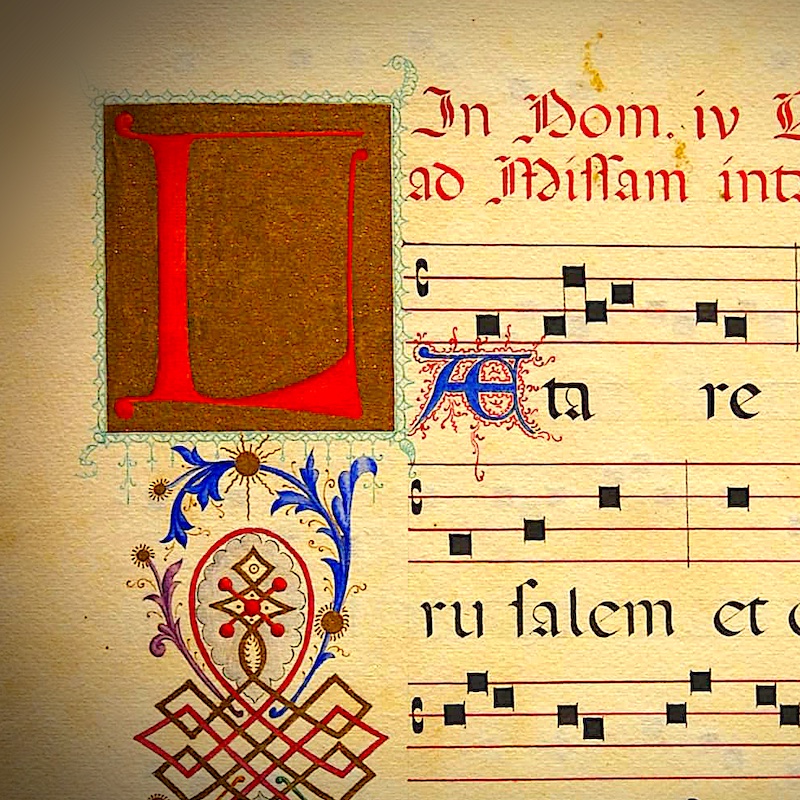 In Dom. iv
ad Missam
LÆta re
ru salem et